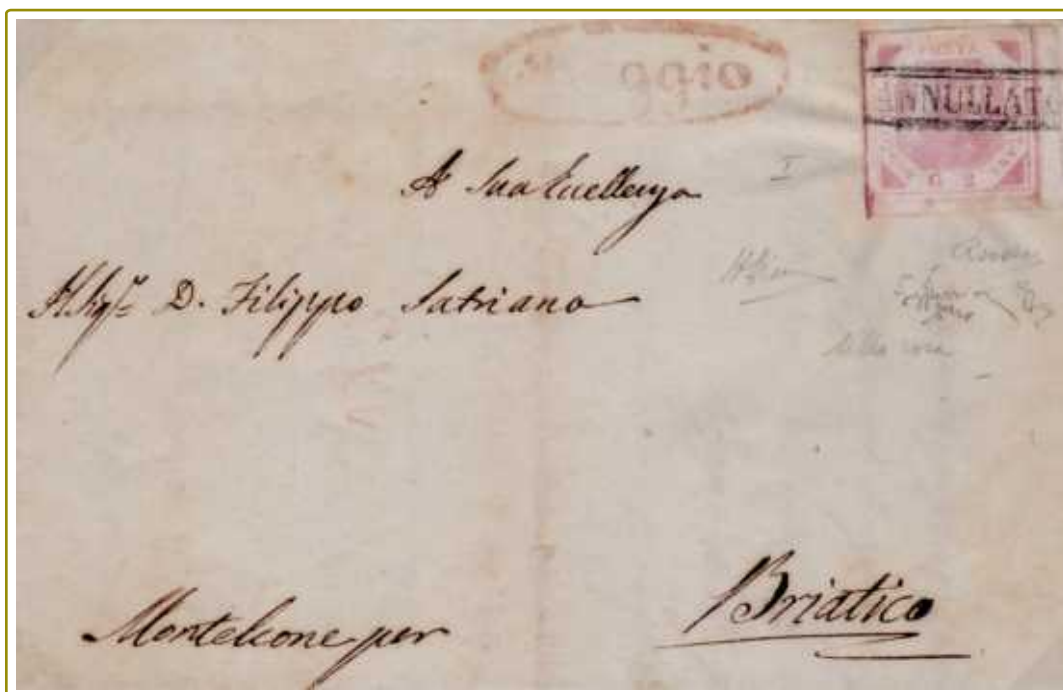 ggio
POSTA
ANNULLATO
G 2
A Sua Eccellenza
I
Il Sig.r D. Filippo Satriano
Monteleone per
Briatico